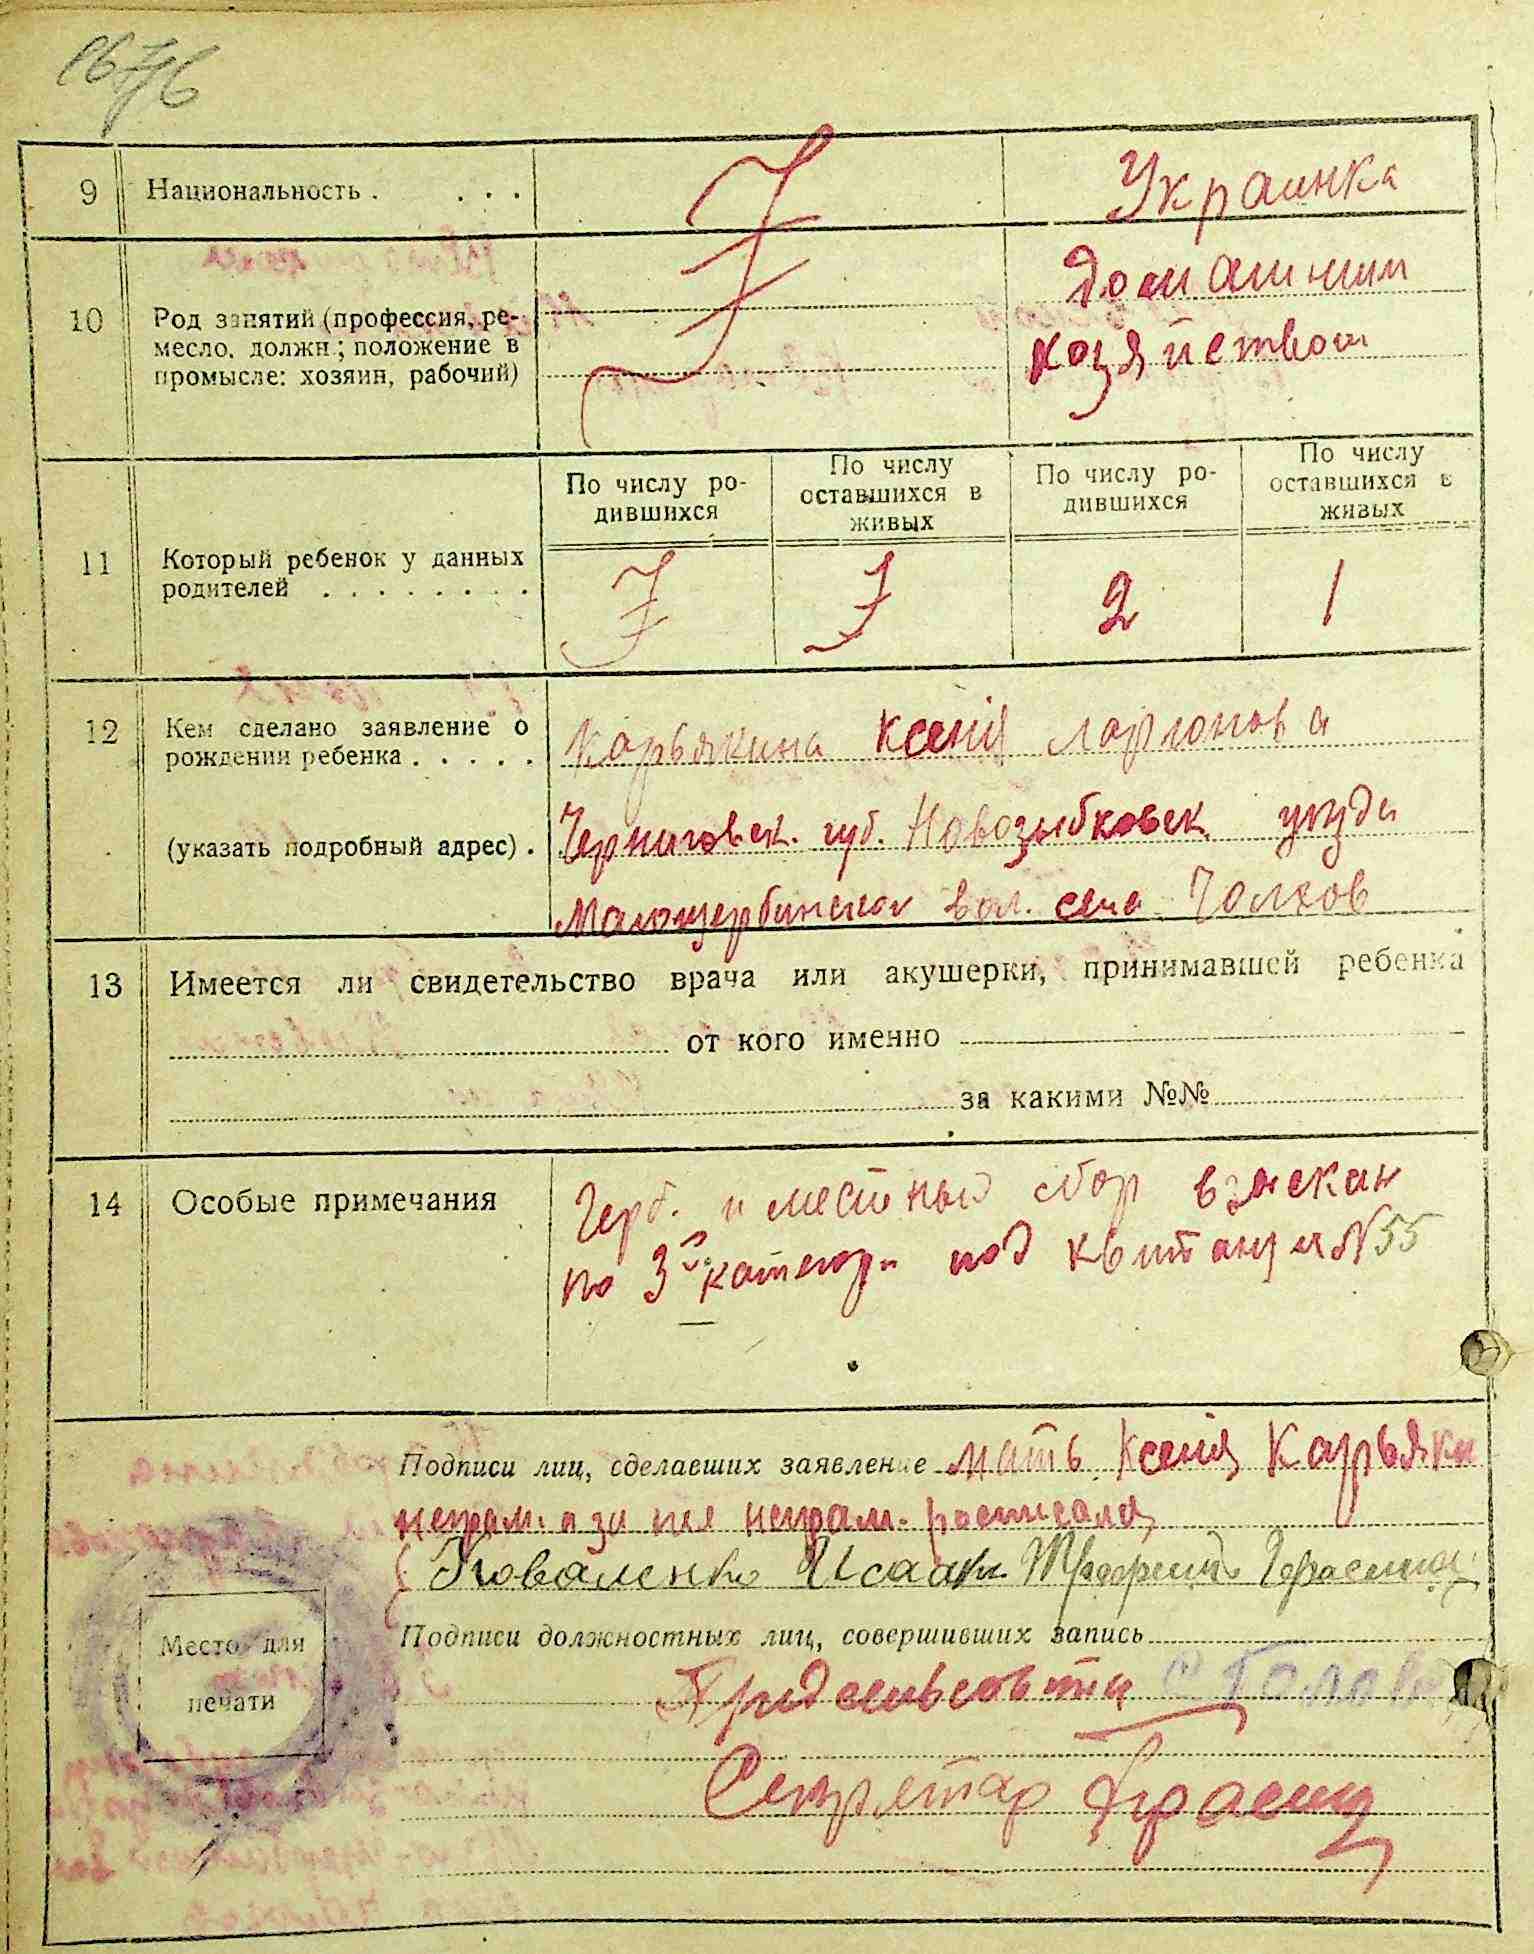 9 Национальность . . . . Украинка
10 Род занятий (профессия, ре-
месло, должн.; положение в
промысле: хозяин, рабочий)
Домашним
хозяйством
11 Который ребенок у данных
родителей . . . . . . . .
По числу ро-
дившихся
По числу
оставшихся в
живых
По числу ро-
дившихся
По числу
оставшихся в
живых
2 1
12 Кем сделано заявление о
рождении ребенка . . . . .
(указать подробный адрес) .
Карьякина Ксенія Ларионова
Черниговск. губ. Новозыбковск. уезда
Малощербинской вол. села Чолхов
13 Имеется ли свидетельство врача или акушерки, принимавшей ребенка
от кого именно
за какими №№
14 Особые примечания
Герб. и местный сбор взыскан
по 3й категор. под квитанция N 55
Подписи лиц, сделавших заявление мать Ксенія Карьяки
неграм. а за нея неграм. расписался
Коваленко Исаак
Подписи должностных лиц, совершивших запись
Пред сельсовета
Секретар
Место для
печати